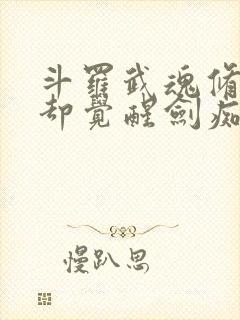 斗羅武魂脩
却覺醒劍痴
慢趴思